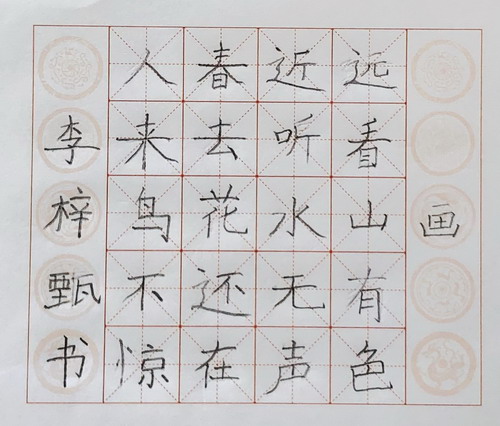 画
远看山有色
近听水无声
春去花还在
人来鸟不惊
李梓甄书